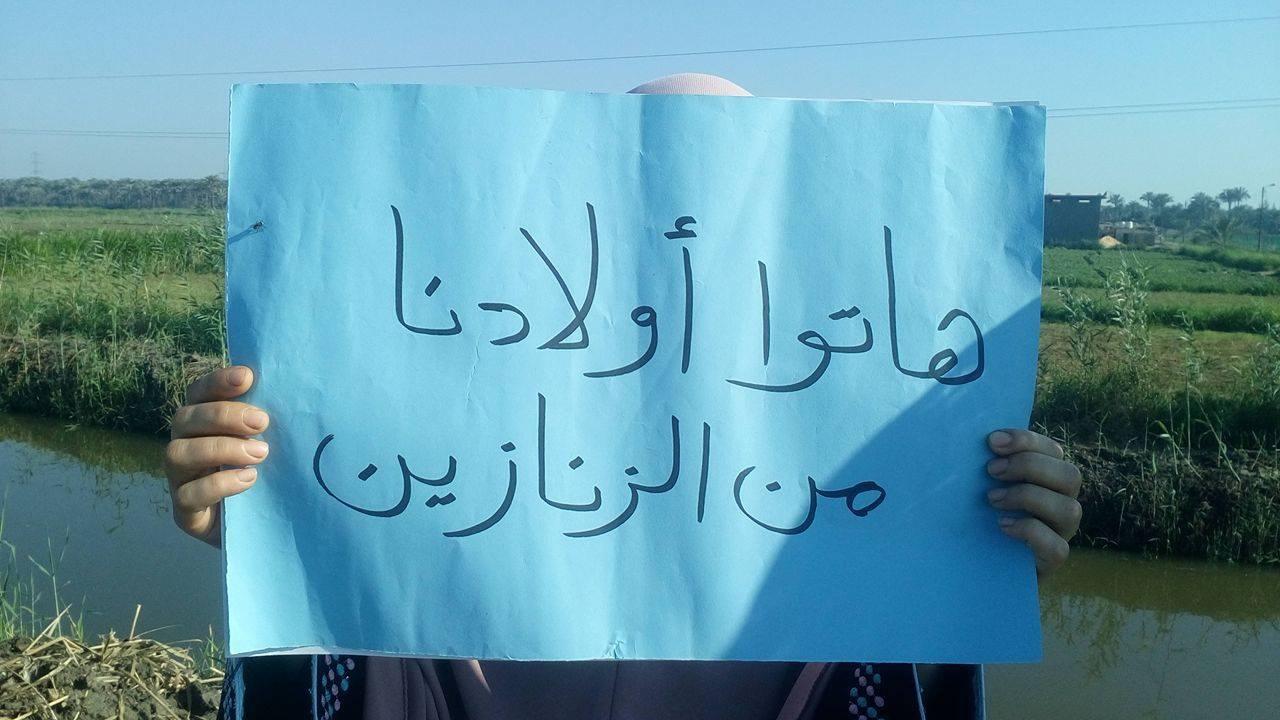 هاتوا أولادنا
من الزنازين